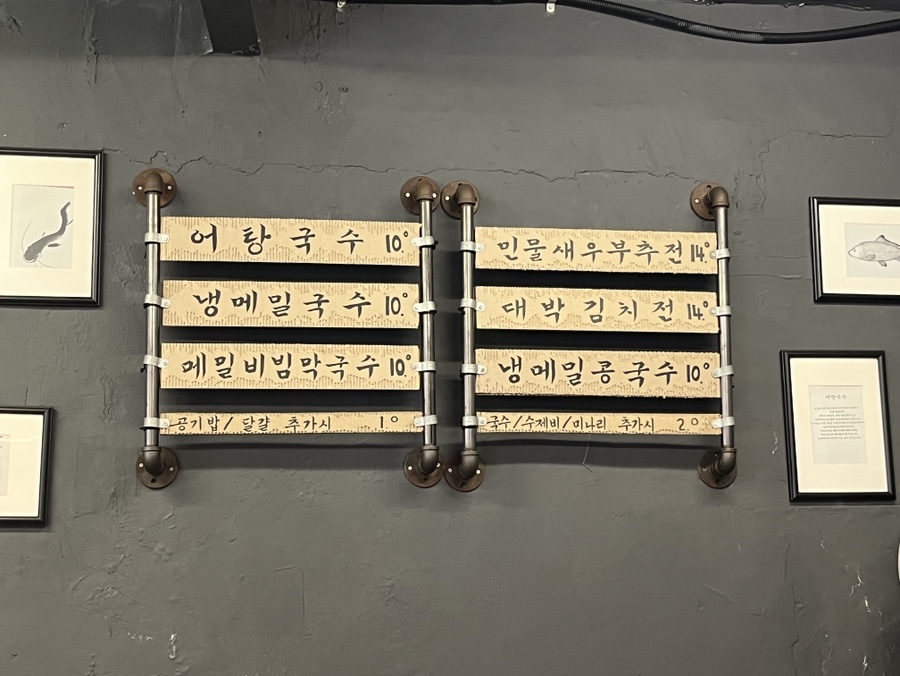 어탕국수 10.⁰
냉메밀국수 10.⁰
메밀비빔막국수 10.⁰
공기밥/ 달걀 추가시 1.⁰
민물새우부추전 14.⁰
대박김치전 14.⁰
냉메밀콩국수 10.⁰
국수/수제비/미나리 추가시 2.⁰
어탕국수